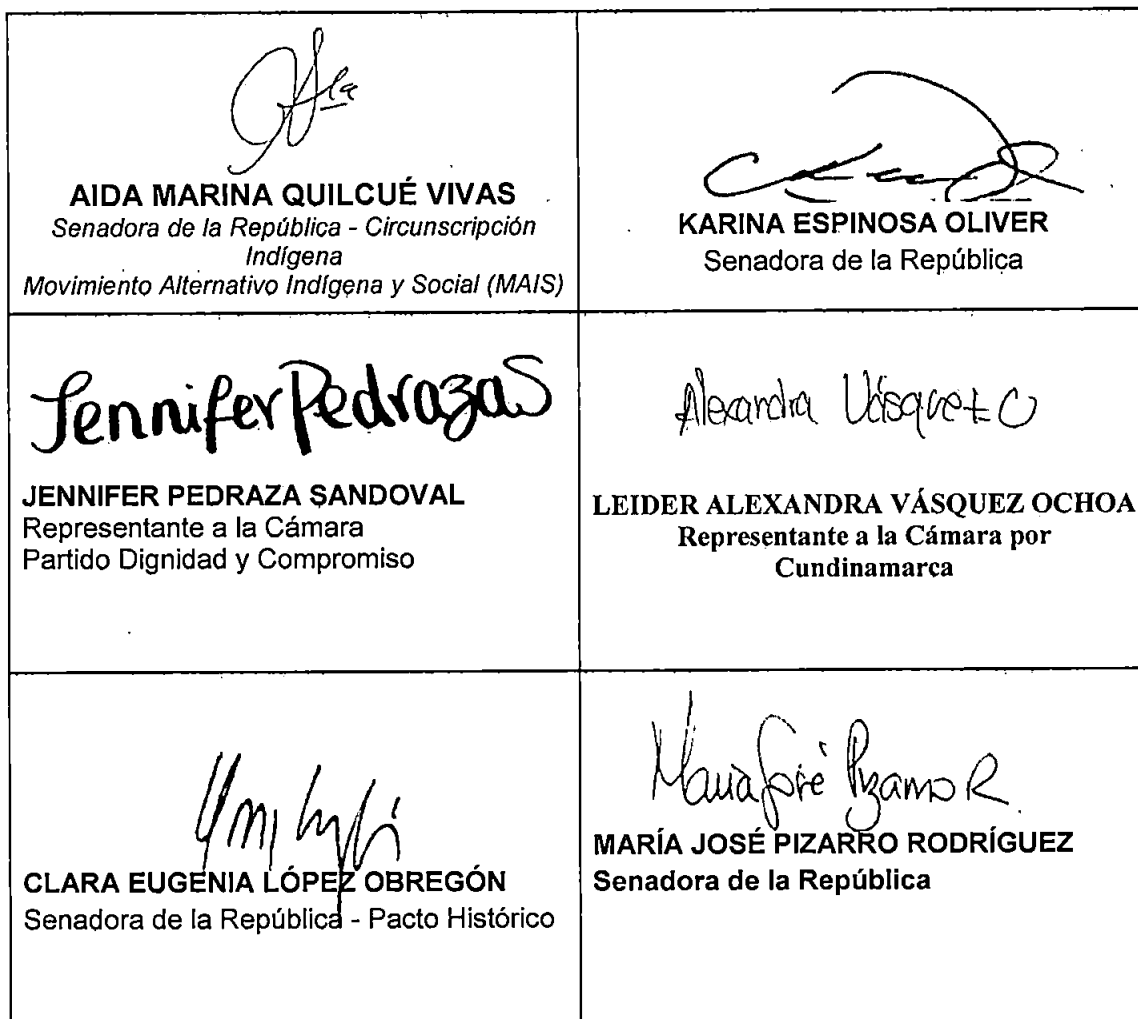 AIDA MARINA QUILCUÉ VIVAS
Senadora de la República - Circunscripción
Indígena
Movimiento Alternativo Indígena y Social (MAIS)
KARINA ESPINOSA OLIVER
Senadora de la República
Jennifer Pedraza S
JENNIFER PEDRAZA SANDOVAL
Representante a la Cámara
Partido Dignidad y Compromiso
Alexandra Vásquez O
LEIDER ALEXANDRA VÁSQUEZ OCHOA
Representante a la Cámara por
Cundinamarca
CLARA EUGENIA LÓPEZ OBREGÓN
Senadora de la República - Pacto Histórico
María José Pizarro R
MARÍA JOSÉ PIZARRO RODRÍGUEZ
Senadora de la República